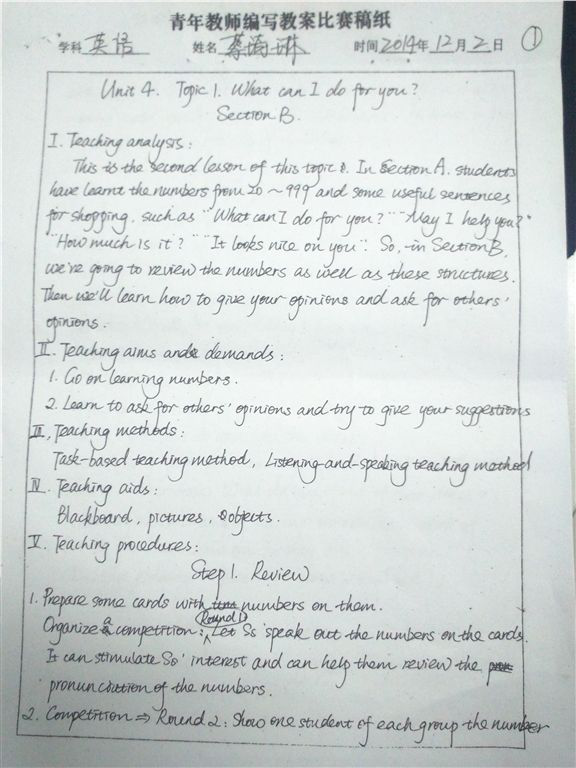 青年教师编写教案比赛稿纸
学科 英语 姓名 蔡琳 时间 2014年 12月 2日 ①
Unit 4. Topic 1. What can I do for you?
Section B.
I. Teaching analysis:
This is the second lesson of this topic. In Section A, students
have learnt the numbers from 20 ~ 999 and some useful sentences
for shopping, such as "What can I do for you?" "May I help you?"
"How much is it?" "It looks nice on you". So, in Section B,
we're going to review the numbers as well as these structures.
Then we'll learn how to give your opinions and ask for others'
opinions.
II. Teaching aims and demands:
1. Go on learning numbers.
2. Learn to ask for others' opinions and try to give your suggestions
III. Teaching methods:
Task-based teaching method, Listening-and-speaking teaching method
IV. Teaching aids:
Blackboard, pictures, objects.
V. Teaching procedures:
Step 1. Review
1. Prepare some cards with numbers on them.
Organize a competition: Round 1: Let Ss speak out the numbers on the cards.
It can stimulate Ss' interest and can help them review the
pronunciation of the numbers.
2. Competition ⇒ Round 2: Show one student of each group the number